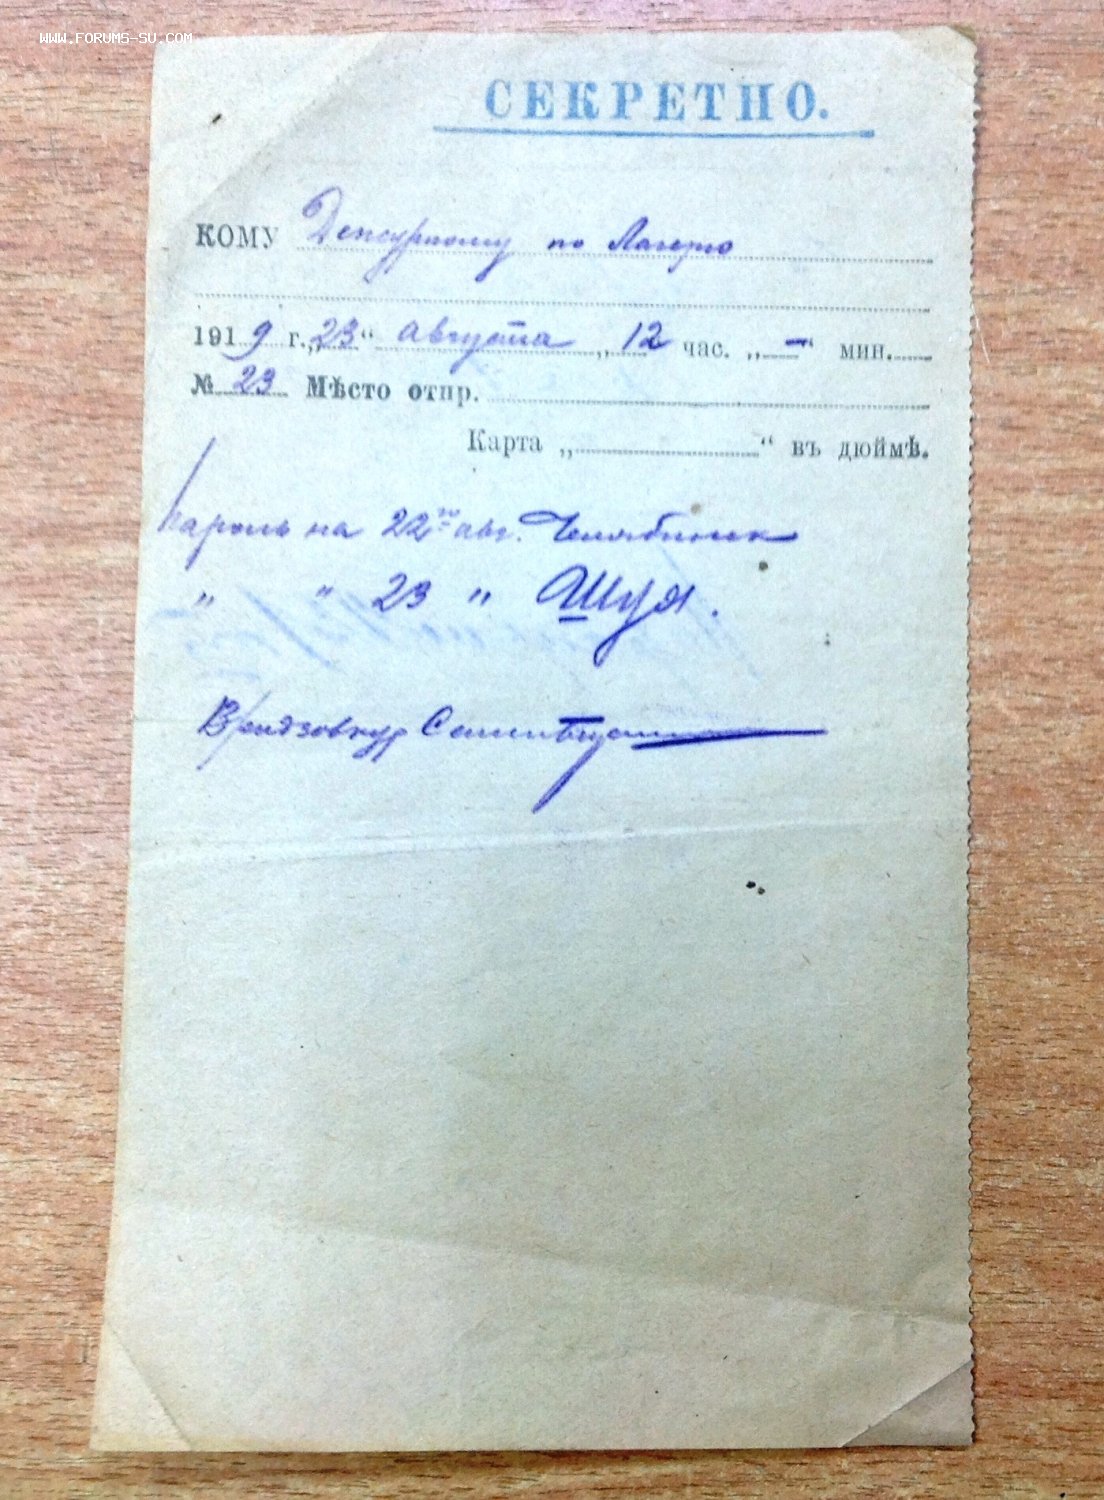 WWW.FORUMS-SU.COM
СЕКРЕТНО.
КОМУ Дежурному по Лагерю
1919 г. „23“ августа „12 час. „—“ мин.
№ 23 Мѣсто отпр.
Карта „ “ въ дюймѣ.
Пароль на 22го авг. Челябинск
" " 23 " Шуя.